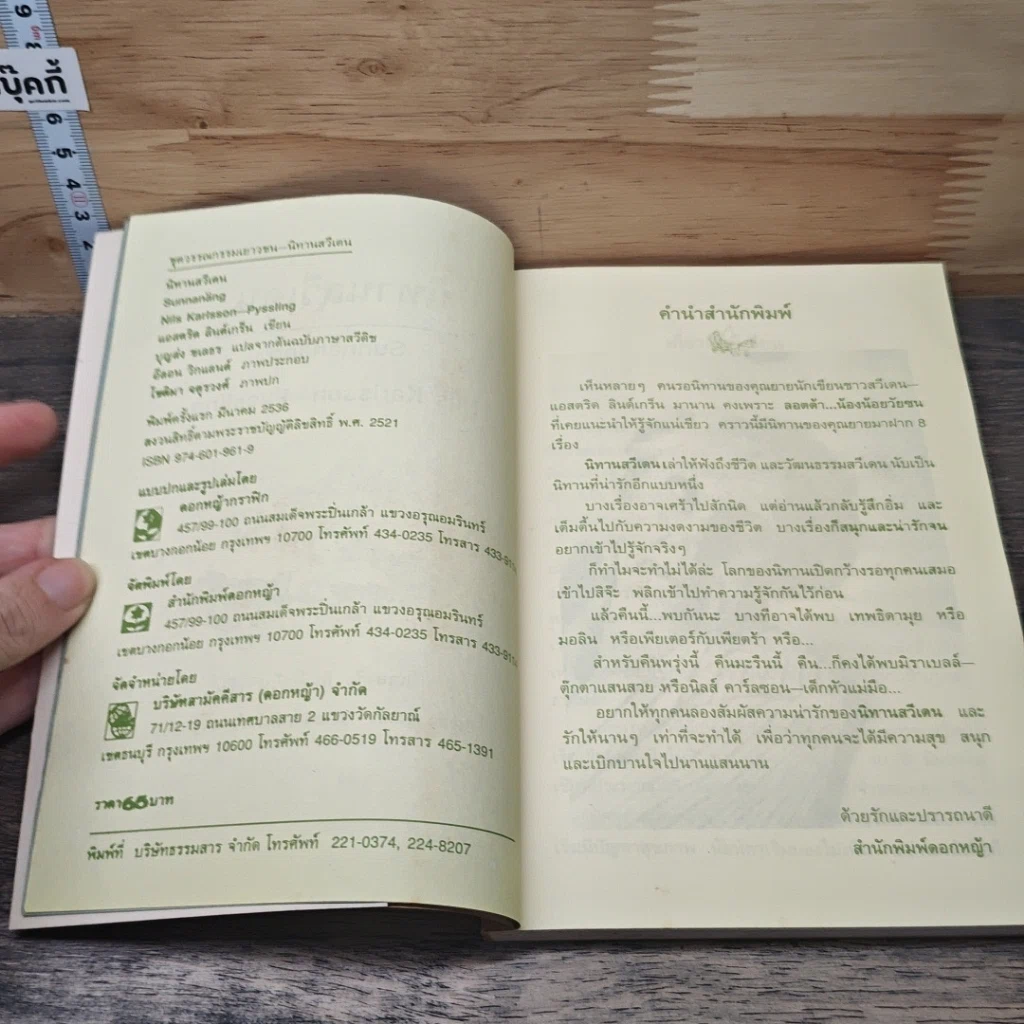 บุ๊คกี้
ชุดวรรณกรรมเยาวชน—นิทานสวีเดน
นิทานสวีเดน
Sunnanäng
Nils Karlsson—Pyssling
แอสตริด ลินด์เกร็น เขียน
บุญส่ง ชเลธร แปลจากต้นฉบับภาษาสวีดิช
อีลอน วิกแลนด์ ภาพประกอบ
โชติมา จตุรวงค์ ภาพปก
พิมพ์ครั้งแรก มีนาคม 2536
สงวนลิขสิทธิ์ตามพระราชบัญญัติลิขสิทธิ์ พ.ศ. 2521
ISBN 974-601-861-9
แบบปกและรูปเล่มโดย
ดอกหญ้ากราฟิก
457/99-100 ถนนสมเด็จพระปิ่นเกล้า แขวงอรุณอมรินทร์
เขตบางกอกน้อย กรุงเทพฯ 10700 โทรศัพท์ 434-0235 โทรสาร
จัดพิมพ์โดย
สำนักพิมพ์ดอกหญ้า
457/99-100 ถนนสมเด็จพระปิ่นเกล้า แขวงอรุณอมรินทร์
เขตบางกอกน้อย กรุงเทพฯ 10700 โทรศัพท์ 434-0235 โทรสาร
จัดจำหน่ายโดย
บริษัทสามัคคีสาร (ดอกหญ้า) จำกัด
71/12-19 ถนนเทศบาลสาย 2 แขวงวัดกัลยาณ์
เขตธนบุรี กรุงเทพฯ 10600 โทรศัพท์ 466-0519 โทรสาร 465-1391
ราคา 65 บาท
พิมพ์ที่ บริษัทธรรมสาร จำกัด โทรศัพท์ 221-0374, 224-8207
คำนำสำนักพิมพ์
เห็นหลายๆ คนรอนิทานของคุณยายนักเขียนชาวสวีเดน—
แอสตริด ลินด์เกร็น มานาน คงเพราะ ลอตต้า...น้องน้อยวัยซน
ที่เคยแนะนำให้รู้จักแน่เชียว คราวนี้มีนิทานของคุณยายมาฝาก 8
เรื่อง
นิทานสวีเดน เล่าให้ฟังถึงชีวิต และวัฒนธรรมสวีเดน นับเป็น
นิทานที่น่ารักอีกแบบหนึ่ง
บางเรื่องอาจเศร้าไปสักนิด แต่อ่านแล้วกลับรู้สึกอิ่ม และ
เต็มตื้นไปกับความงดงามของชีวิต บางเรื่องก็สนุกและน่ารักจน
อยากเข้าไปรู้จักจริงๆ
ก็ทำไมจะทำไม่ได้ล่ะ โลกของนิทานเปิดกว้างรอทุกคนเสมอ
เข้าไปสิจ๊ะ พลิกเข้าไปทำความรู้จักกันไว้ก่อน
แล้วคืนนี้...พบกันนะ บางทีอาจได้พบ เทพธิดามุย หรือ
มอลิน หรือเพียเตอร์กับเพียตร้า หรือ...
สำหรับคืนพรุ่งนี้ คืนมะรืนนี้ คืน...ก็คงได้พบมิราเบลล์—
ตุ๊กตาแสนสวย หรือนิลส์ คาร์ลซอน—เด็กหัวแม่มือ...
อยากให้ทุกคนลองสัมผัสความน่ารักของนิทานสวีเดน และ
รักให้นานๆ เท่าที่จะทำได้ เพื่อว่าทุกคนจะได้มีความสุข สนุก
และเบิกบานใจไปนานแสนนาน
ด้วยรักและปรารถนาดี
สำนักพิมพ์ดอกหญ้า